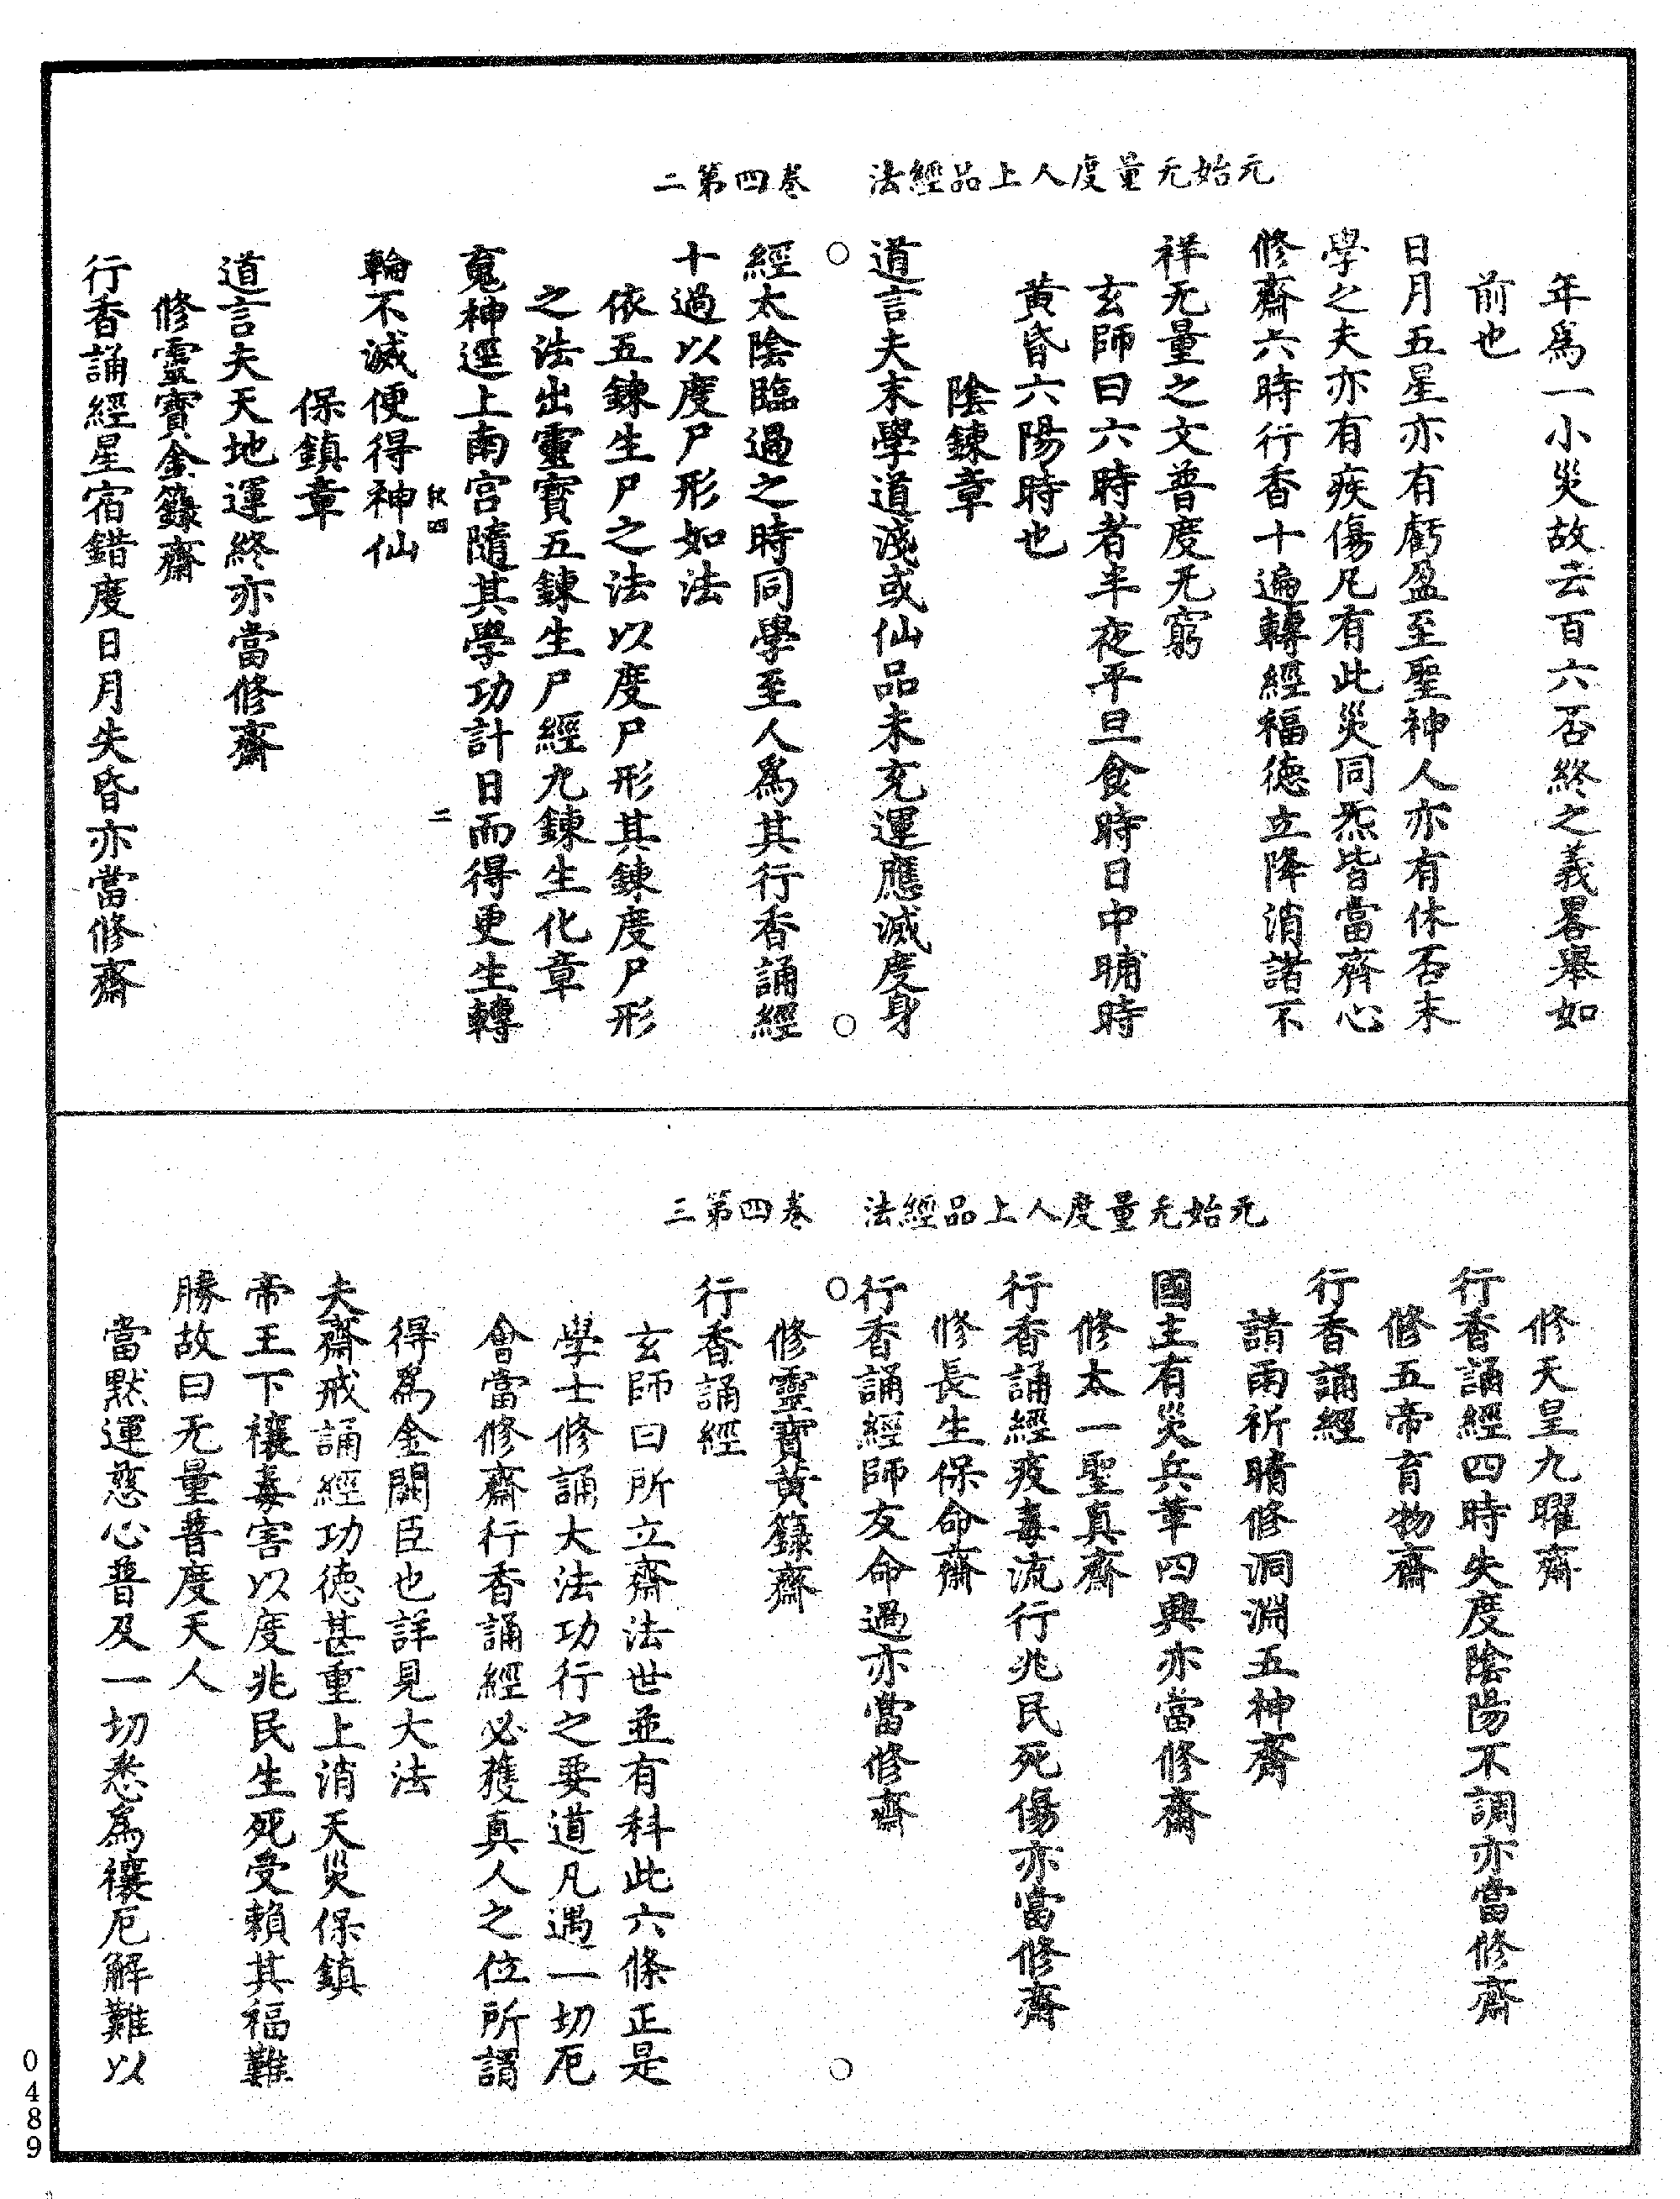 元始无量度人上品經法　卷四第二
年爲一小災故云百六否終之義畧舉如
前也
日月五星亦有虧盈至聖神人亦有休否末
學之夫亦有疾傷凡有此災同炁皆當齋心
修齋六時行香十遍轉經福德立降消諸不
祥无量之文普度无窮
玄師曰六時者半夜平旦食時日中晡時
黃昏六陽時也
陰鍊章
道言夫末學道淺或仙品未充運應滅度身
經太陰臨過之時同學至人爲其行香誦經
十過以度尸形如法
依五鍊生尸之法以度尸形其鍊度尸形
之法出靈寶五鍊生尸經九鍊生化章
䰟神逕上南宮隨其學功計日而得更生轉
二
輪不滅便得神仙
保鎮章
道言夫天地運終亦當修齋
修靈寶金籙齋
行香誦經星宿錯度日月失昏亦當修齋
元始无量度人上品經法　卷四第三
修天皇九曜齋
行香誦經四時失度陰陽不調亦當修齋
修五帝育物齋
行香誦經
請雨祈晴修洞淵五神齋
國主有災兵革四興亦當修齋
修太一聖真齋
行香誦經疫毒流行兆民死傷亦當修齋
修長生保命齋
行香誦經師友命過亦當修齋
修靈寶黃籙齋
行香誦經
玄師曰所立齋法世並有科此六條正是
學士修誦大法功行之要道凡遇一切厄
會當修齋行香誦經必獲真人之位所謂
得爲金闕臣也詳見大法
夫齋戒誦經功德甚重上消天災保鎮
帝王下禳毒害以度兆民生死受賴其福難
勝故曰无量普度天人
當默運慈心普及一切悉爲禳厄解難以
0489